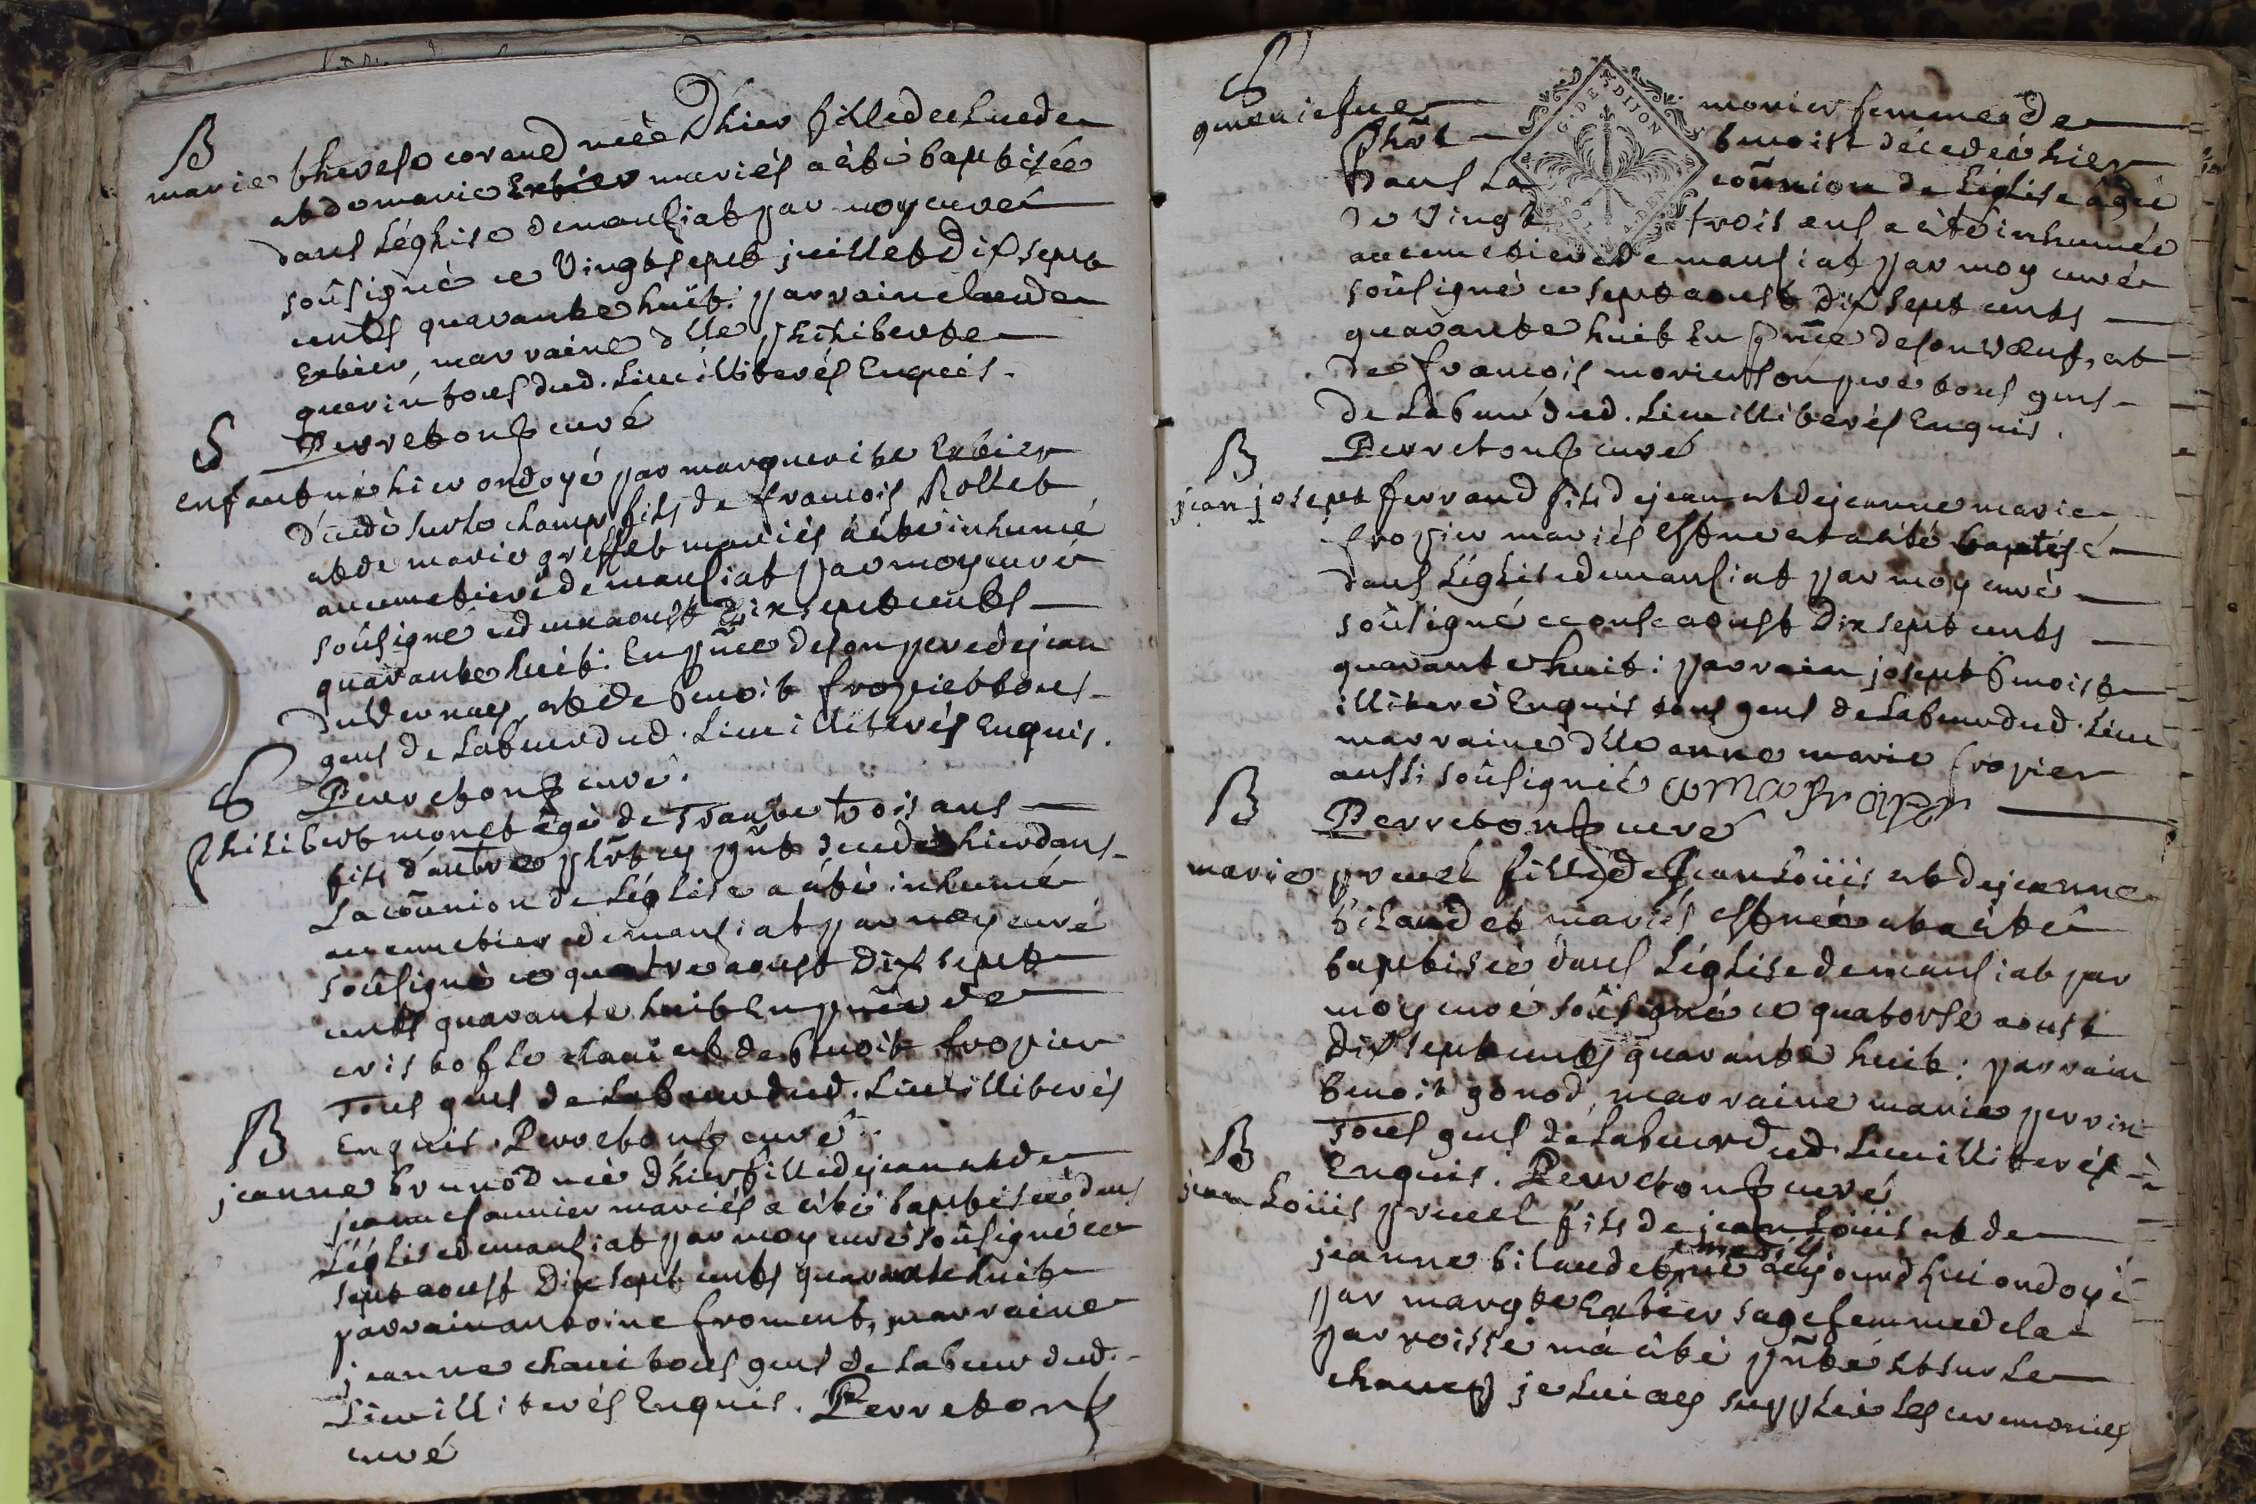 B
marie therese corand née Dhier fille de claude
et de marie Exbier mariés a êté baptisée
dans Léglise demansiat par moy curé
soûsigné ce Vingtsept juillet Dixsept
cents quarante huit: parrain claude
Exbier, marraine dlle philiberte
guerin tous dud. Lieu illiterés Enquis.
Perretons curé
S
enfant né hier ondoyé par marguerite Exbier
décédé sur le champ fils de francois Rollet
et de marie greffet mariés a êté inhumé
au cimetiere de mansiat par moy curé
soûsigné ce deux aoust Dixsept cents
quarante huit: En pñce de son pere de jean
duvernay, et de benoit fropier tous
gens de Labeur dud. Lieu illiterés Enquis.
Perretons curé.
S
philibert monet âgé de Trante trois ans
fils d'autre phrt cy pñt decedé hier dans
La coñnion de Léglise a êté inhumé
au cimetiere de mansiat par moy curé
soûsigné ce quatre aoust Dixsept
cents quarante huit En pñce de
cristofle chani et de benoit fropier
Tous gens de Labeur dud. Lieu illiterés
Enquis. Perretons curé.
B
jeanne brunod née dhier fille de jean et de
jeanne saunier mariés a êté baptisée dans
Léglise demansiat par moy curé soûsigné ce
sept aoust Dix sept cents quarante huit
parrain antoine froment, marraine
jeanne chani tous gens de Labeur dud.
Lieu illiterés Enquis. Perretons
curé
S
geneviefve morier femme de
Phrt benoist décedée hier
Dans La coñnion de Léglise âgée
de Vingt trois ans a êté inhumée
au cimetiere de mansiat par moy curé
soûsigné ce sept aoust Dix sept cents
quarante huit En pñce de son vœuf, et
de francois morier son pere tous gens
de Labeur dud. Lieu illiterés Enquis.
Perretons curé
G. DE DIJON
B
jean josept ferrand fils de jean et de jeanne marie
fropier mariés est né et a êté baptisé
dans Léglise demansiat par moy curé
soûsigné ce onse aoust Dix sept cents
quarante huit: parrain josept benoist
illiteré Enquis tous gens de Labeur dud. Lieu
marraine dlle anne marie fropier
aussi soûsignée
B
Perretons curé
marie pruel fille de jean Loüis et de jeanne
bilaudet mariés est née et a êté
baptisée dans Léglise de mansiat par
moy curé soûsigné ce quatorse aoust
Dix sept cents quarante huit: parrain
benoit gonod, marraine marie perrin
Tous gens de Labeur dud. Lieu illiterés
Enquis. Perretons curé
B
jean Loüis pruel fils de jean Loüis et de
jeanne bilaudet mariés né aujourdhui ondoyé
par margte Exbier sagefemme de la
parroisse m'a êté pñté et sur le
champ je lui aÿ supplée Les ceremonies